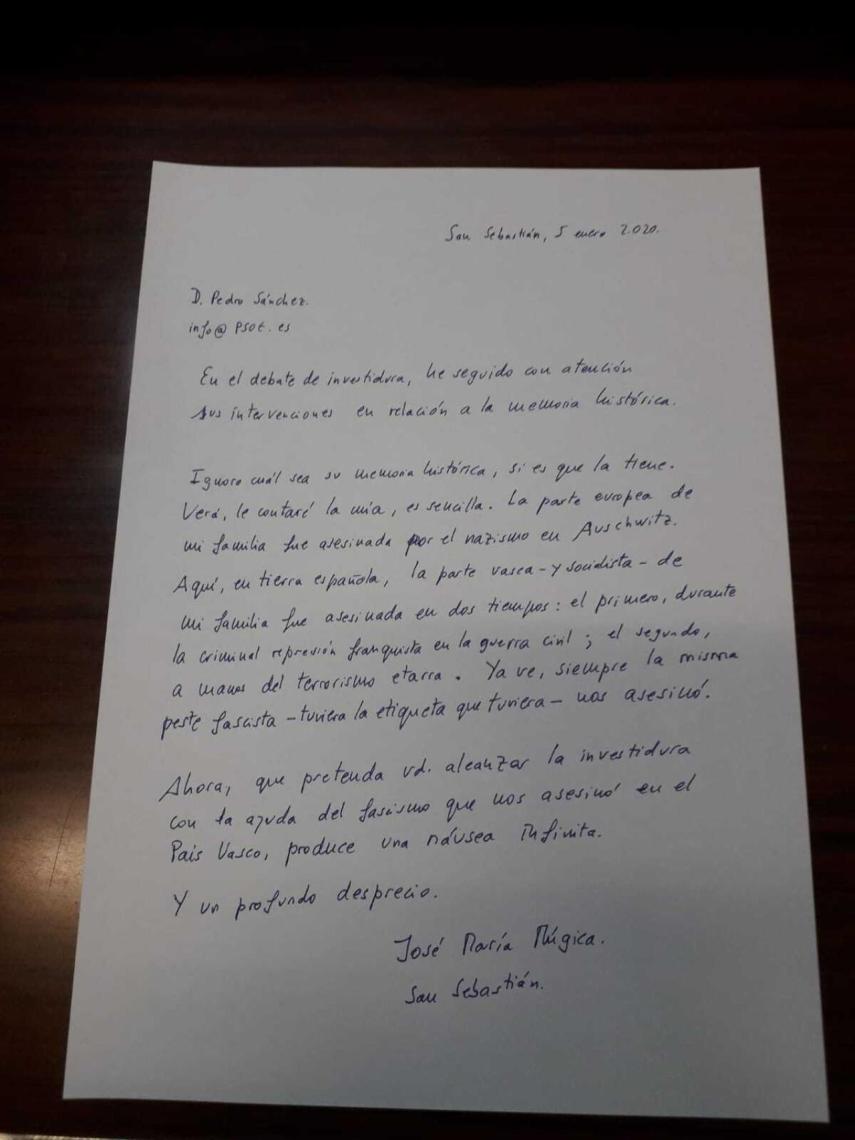 San Sebastián, 5 enero 2.020.
D. Pedro Sánchez.
info@psoe.es
En el debate de investidura, he seguido con atención
sus intervenciones en relación a la memoria histórica.
Ignoro cuál sea su memoria histórica, si es que la tiene.
Verá, le contaré la mía, es sencilla. La parte europea de
mi familia fue asesinada por el nazismo en Auschwitz.
Aquí, en tierra española, la parte vasca - y socialista - de
mi familia fue asesinada en dos tiempos: el primero, durante
la criminal represión franquista en la guerra civil; el segundo,
a manos del terrorismo etarra. Ya ve, siempre la misma
peste fascista - tuviera la etiqueta que tuviera - nos asesinó.
Ahora, que pretenda vd. alcanzar la investidura
con la ayuda del fascismo que nos asesinó en el
País Vasco, produce una náusea infinita.
Y un profundo desprecio.
José María Múgica.
San Sebastián.